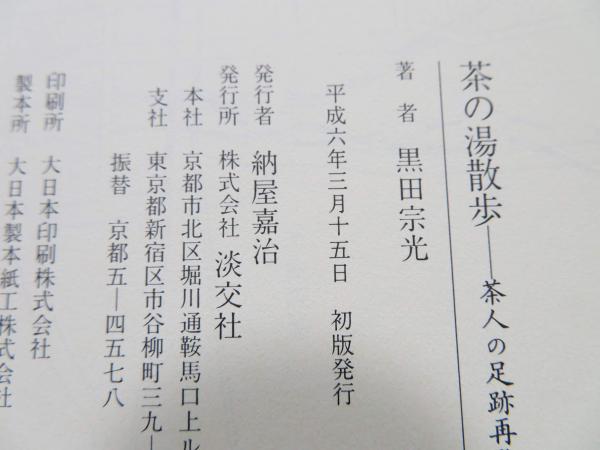 茶の湯散歩――茶人の足跡再
著者 黒田宗光
平成六年三月十五日 初版発行
発行者 納屋嘉治
発行所 株式会社 淡交社
本社 京都市北区堀川通鞍馬口上ル
支社 東京都新宿区市谷柳町三九―
振替 京都五―四五七八
印刷所 大日本印刷株式会社
製本所 大日本製本紙工株式会社